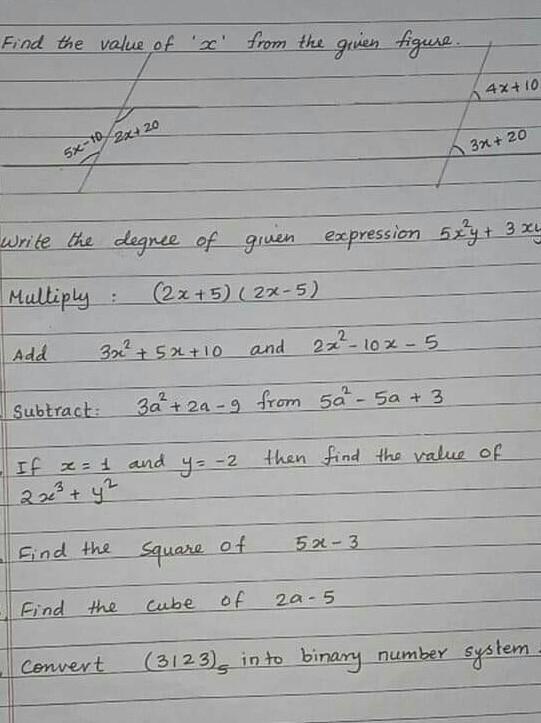 Find the value of 'x' from the given figure.
4x+10
5x-10 2x+20
3x+20
Write the degree of given expression 5x²y + 3xy
Multiply : (2x+5) (2x-5)
Add 3x² + 5x + 10 and 2x² - 10x - 5
Subtract: 3a² + 2a - 9 from 5a² - 5a + 3
If x = 1 and y = -2 then find the value of
2x³ + y²
Find the square of 5x - 3
Find the cube of 2a - 5
Convert (3123)₅ into binary number system.